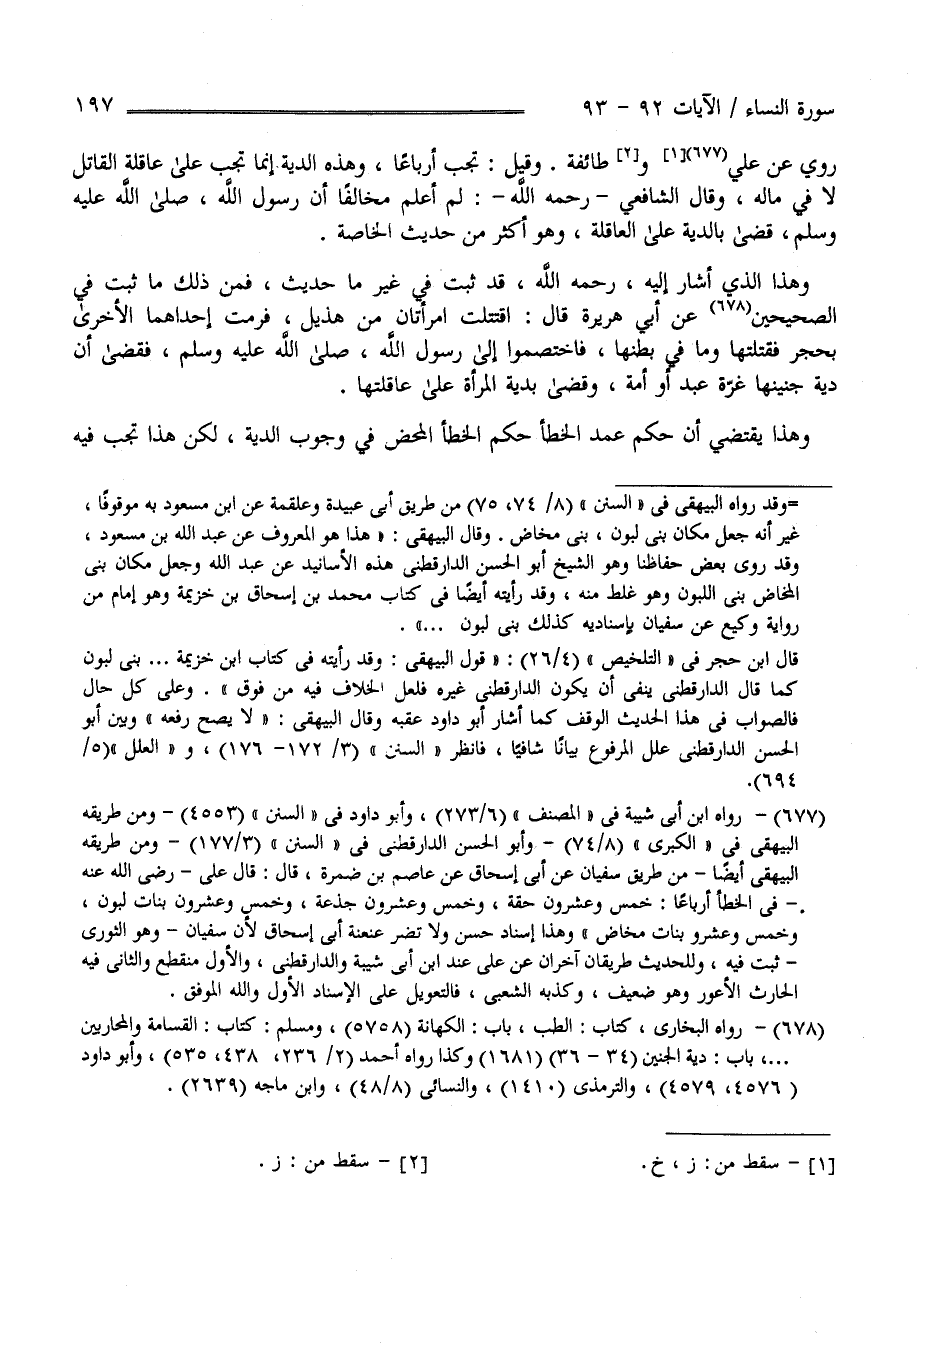 سورة النساء / الآيات ٩٢ - ٩٣ ١٩٧
روي عن علي(٦٧٧)[١] و[٢] طائفة . وقيل : تجب أرباعًا ، وهذه الدية إنما تجب علىٰ عاقلة القاتل
لا في ماله ، وقال الشافعي - رحمه اللَّه - : لم أعلم مخالفًا أن رسول اللَّه ، صلىٰ اللَّه عليه
وسلم، قضىٰ بالدية علىٰ العاقلة ، وهو أكثر من حديث الخاصة .
وهذا الذي أشار إليه ، رحمه اللَّه ، قد ثبت في غير ما حديث ، فمن ذلك ما ثبت في
الصحيحين(٦٧٨) عن أبي هريرة قال : اقتتلت امرأتان من هذيل ، فرمت إحداهما الأخرىٰ
بحجر فقتلتها وما في بطنها ، فاختصموا إلىٰ رسول اللَّه ، صلىٰ اللَّه عليه وسلم ، فقضىٰ أن
دية جنينها غرّة عبد أو أمة ، وقضىٰ بدية المرأة علىٰ عاقلتها .
وهذا يقتضي أن حكم عمد الخطأ حكم الخطأ المحض في وجوب الدية ، لكن هذا تجب فيه
=وقد رواه البيهقى فى « السنن » (٨/ ٧٤، ٧٥) من طريق أبى عبيدة وعلقمة عن ابن مسعود به موقوفًا ،
غير أنه جعل مكان بنى لبون ، بنى مخاض . وقال البيهقى : « هذا هو المعروف عن عبد الله بن مسعود ،
وقد روى بعض حفاظنا وهو الشيخ أبو الحسن الدارقطنى هذه الأسانيد عن عبد الله وجعل مكان بنى
المخاض بنى اللبون وهو غلط منه ، وقد رأيته أيضًا فى كتاب محمد بن إسحاق بن خزيمة وهو إمام من
رواية وكيع عن سفيان بإسناديه كذلك بنى لبون ...» .
قال ابن حجر فى « التلخيص » (٢٦/٤) : « قول البيهقى : وقد رأيته فى كتاب ابن خزيمة ... بنى لبون
كما قال الدارقطنى ينفى أن يكون الدارقطنى غيره فلعل الخلاف فيه من فوق » . وعلى كل حال
فالصواب فى هذا الحديث الوقف كما أشار أبو داود عقبه وقال البيهقى : « لا يصح رفعه » وبين أبو
الحسن الدارقطنى علل المرفوع بيانًا شافيًا ، فانظر « السنن » (٣/ ١٧٢- ١٧٦) ، و « العلل »(٥/
٦٩٤).
(٦٧٧) - رواه ابن أبى شيبة فى « المصنف » (٢٧٣/٦) ، وأبو داود فى « السنن » (٤٥٥٣) - ومن طريقه
البيهقى فى « الكبرى » (٧٤/٨) - وأبو الحسن الدارقطنى فى « السنن » (١٧٧/٣) - ومن طريقه
البيهقى أيضًا - من طريق سفيان عن أبى إسحاق عن عاصم بن ضمرة ، قال : قال على - رضى الله عنه
- فى الخطأ أرباعًا : خمس وعشرون حقة ، وخمس وعشرون جذعة ، وخمس وعشرون بنات لبون ،
وخمس وعشرو بنات مخاض » وهذا إسناد حسن ولا تضر عنعنة أبى إسحاق لأن سفيان - وهو الثورى
- ثبت فيه ، وللحديث طريقان آخران عن على عند ابن أبى شيبة والدارقطنى ، والأول منقطع والثانى فيه
الحارث الأعور وهو ضعيف ، وكذبه الشعبى ، فالتعويل على الإسناد الأول والله الموفق .
(٦٧٨) - رواه البخارى ، كتاب : الطب ، باب : الكهانة (٥٧٥٨) ، ومسلم : كتاب : القسامة والمحاربين
...، باب : دية الجنين (٣٤ - ٣٦) (١٦٨١) وكذا رواه أحمد (٢/ ٢٣٦، ٤٣٨، ٥٣٥) ، وأبو داود
( ٤٥٧٦، ٤٥٧٩) ، والترمذى (١٤١٠) ، والنسائى (٤٨/٨) ، وابن ماجه (٢٦٣٩) .
[١] - سقط من : ز ، خ . [٢] - سقط من : ز .